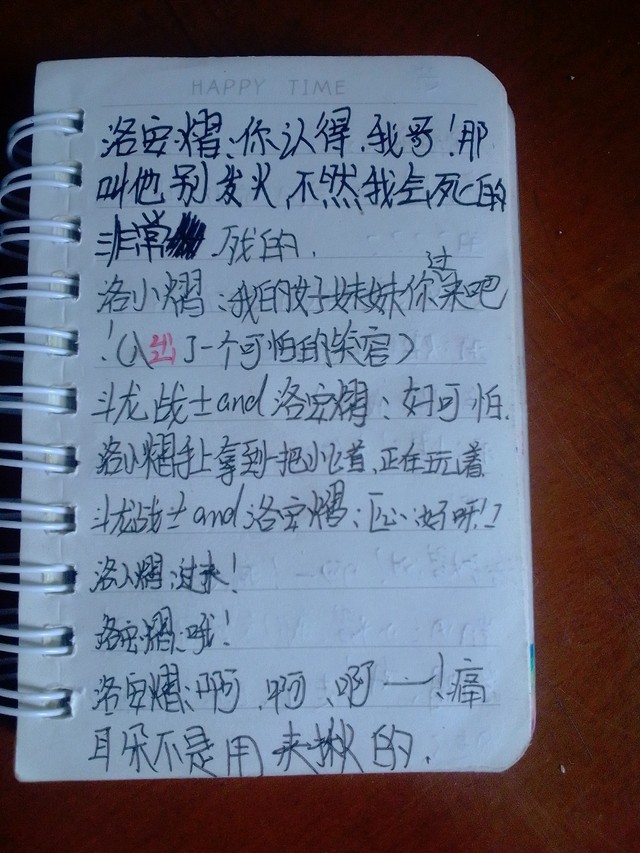 HAPPY TIME
洛安熠:你认得,我哥!那
叫他别发火,不然我会死的
非常 死的.
洛小熠:我的好妹妹你过来吧
!( 了一个可怕的笑容)
斗龙战士and洛安熠:好可怕.
洛小熠手上拿到一把小匕首,正在玩着
斗龙战士and洛安熠: 好呀!
洛小熠:过来!
洛安熠:哦!
洛安熠:啊,啊,啊——!痛
耳朵不是用来揪的.